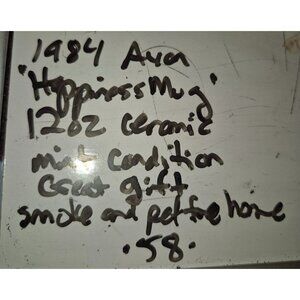 1984 Avon
"Happiness Mug"
12oz ceramic
mint condition
Great gift
smoke and pet free home
.58.